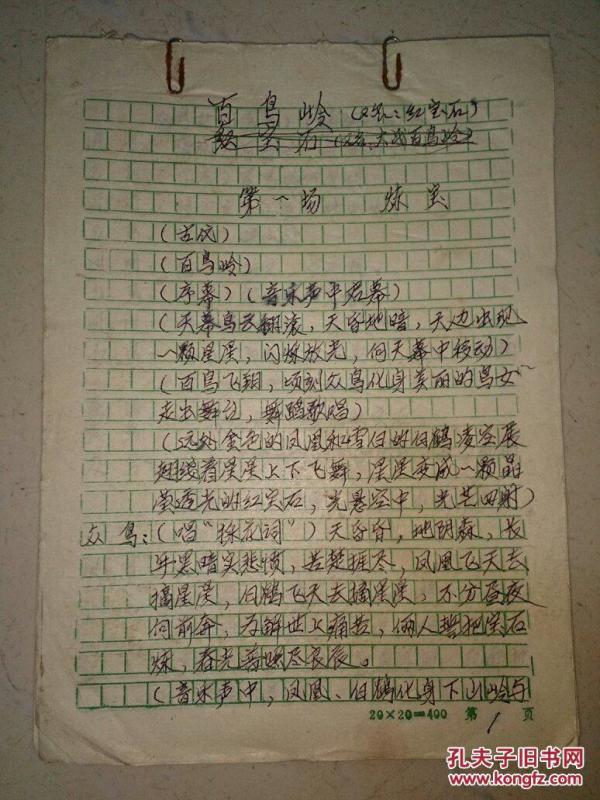 百鸟岭（又名：红宝石）
红宝石（又名：大战百鸟岭）
第一场　炼宝
（古代）
（百鸟岭）
（序幕）（音乐声中启幕）
（天幕乌云翻滚，天昏地暗，天边出现
一颗星星，闪烁放光，向天幕中移动）
（百鸟飞翔，顷刻众鸟化身美丽的鸟女
走出舞台，舞蹈歌唱）
（远处金色的凤凰和雪白的白鹤凌空展
翅绕着星星上下飞舞，星星变成一颗晶
莹透光的红宝石，光悬空中，光芒四射）
众鸟：（唱“採花词”）天昏昏，地阴森，长
年黑暗实悲愤，苦楚捱尽，凤凰飞天去
摘星星，白鹤飞天去摘星星，不分昼夜
向前奔，为解世上痛苦，俩人誓把宝石
炼，春光普照尽良辰。
（音乐声中，凤凰、白鹤化身下山岭与
20×20=400 第1页
孔夫子旧书网
www.kongfz.com